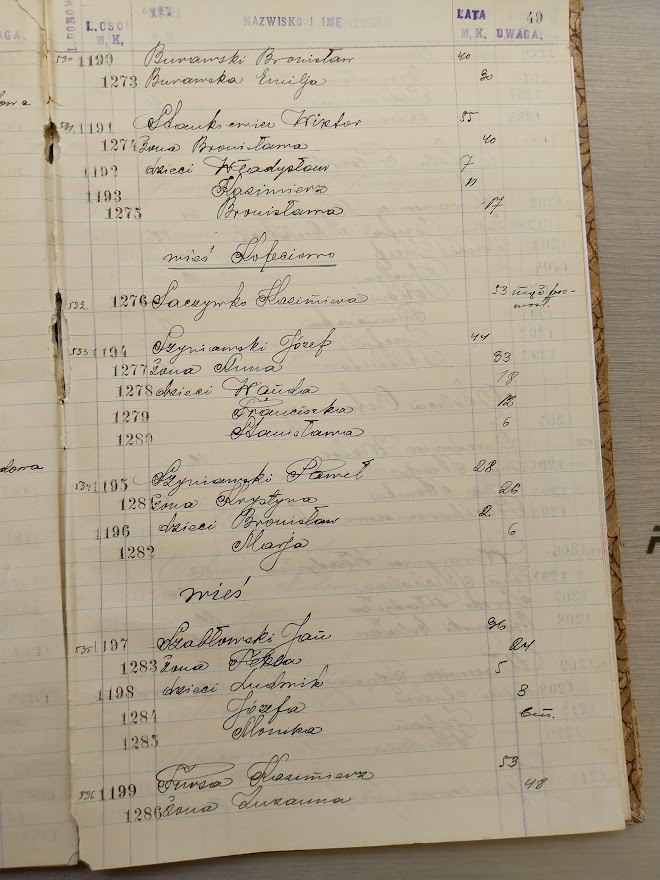 49
L. DOMÓW
L. OSÓB
M. K.
NAZWISKO I IMIĘ
LATA
M. K. UWAGA.
530 1190 Burawski Bronisław 40
1273 Burawska Emilja 30
531 1191 Stankiewicz Wiktor 55
1274 żona Bronisława 40
1192 dzieci Władysław 7
1193 Kazimierz 11
1275 Bronisława 17
wieś
532 1276 Łaczywko Kazimiera 53 mąż
533 1194 Szyniawski Józef 44
1277 żona Anna 33
1278 dzieci Wanda 18
1279 Franciszka 12
1280 Stanisława 6
534 1195 Szyniawski Paweł 28
1281 żona Krystyna 26
1196 dzieci Bronisław 2
1282 Marja 6
wieś
535 1197 Szabłowski Jan 36
1283 żona 24
1198 dzieci Ludwik 5
1284 Józefa 3
1285 Monika
536 1199 Fursa Kazimierz 53
1286 żona Zuzanna 48